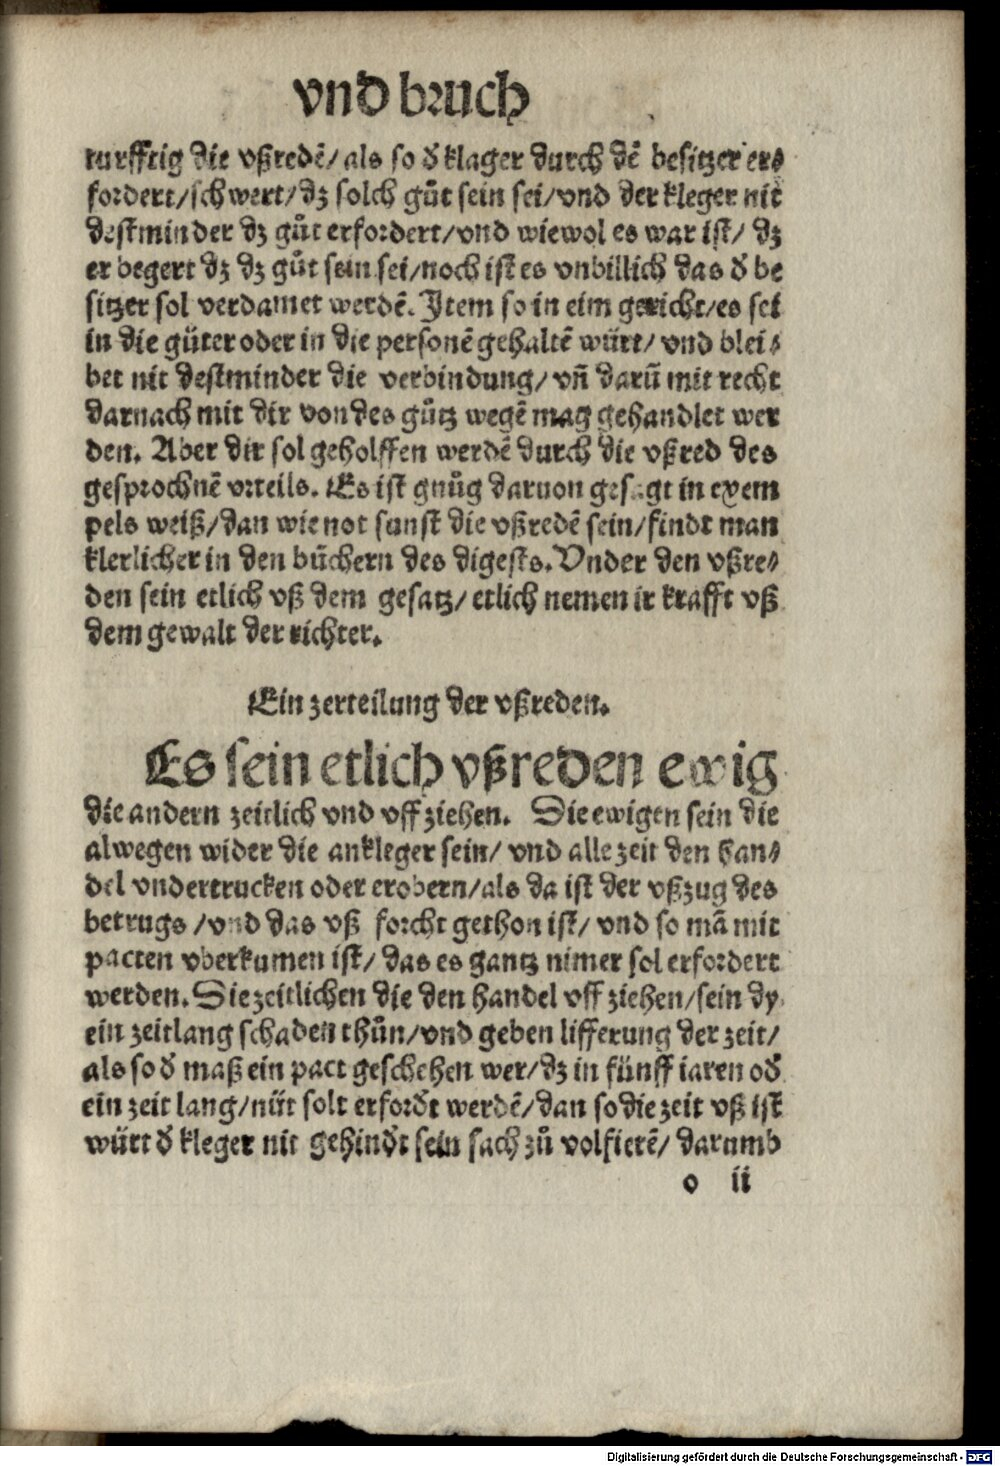 vnd bruch
turfftig die vßredē/als so d̓ klager durch dē besitzer er⸗
fordert/schwert/dz solch gůt sein sei/vnd der kleger nit
destminder dz gůt erfordert/vnd wiewol es war ist/ dz
er begert dz dz gůt sein sei/noch ist es vnbillich das d̓ be
sitzer sol verdamet werdē. Item so in eim gericht/es sei
in die güter oder in die personē gehaltē würt/ vnd blei⸗
bet nit destminder die verbindung/ vn̄ darū mit recht
darnach mit dir von des gůtz wegē mag gehandlet wer
den. Aber dir sol geholffen werdē durch die vßred des
gesprochnē vrteils. Es ist gnůg daruon gesagt in exem
pels weiß/dan wie not sunst die vßredē sein/findt man
klerlicher in den büchern des digests. Vnder den vßre⸗
den sein etlich vß dem gesatz/etlich nemen ir krafft vß
dem gewalt der richter.
Ein zerteilung der vßreden.
Es sein etlich vßreden ewig
die andern zeitlich vnd vff ziehen. Die ewigen sein die
alwegen wider die ankleger sein/ vnd alle zeit den han⸗
del vndertrucken oder erobern/als da ist der vßzug des
betrugs /vnd das vß forcht gethon ist/ vnd so mā mit
pacten vberkumen ist/ das es gantz nimer sol erfordert
werden. Die zeitlichen die den handel vff ziehen/sein dy
ein zeitlang schaden thůn/vnd geben lifferung der zeit/
als so d̓ maß ein pact geschehen wer/dz in fünff iaren od̓
ein zeit lang/nüt solt erford̓t werdē/dan so die zeit vß ist
würt d̓ kleger nit gehind̓t sein sach zů volfierē/ darumb
o ii
Digitalisierung gefördert durch die Deutsche Forschungsgemeinschaft - DFG